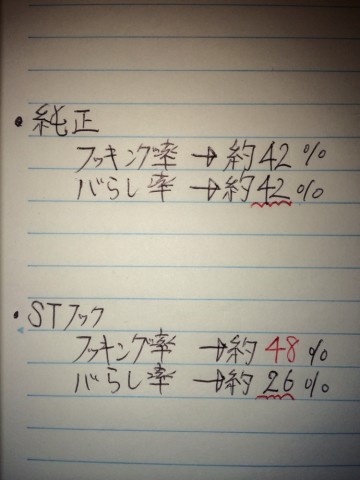 • 純正
フッキング率 → 約42%
バらし率 → 約42%
• STフック
フッキング率 → 約48%
バらし率 → 約26%